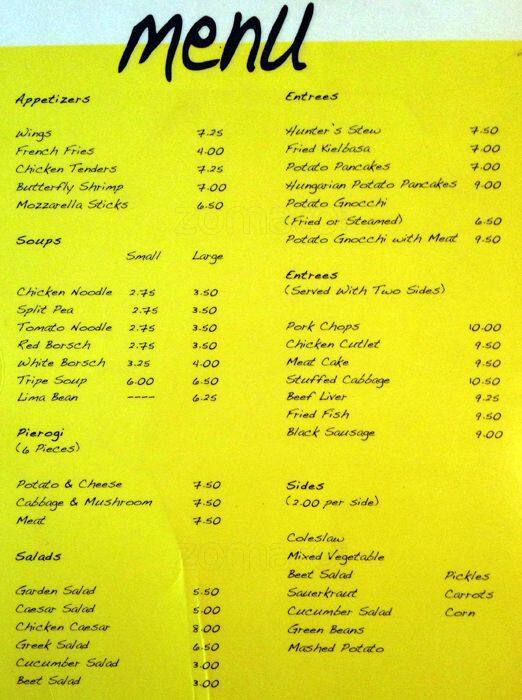 menu
Appetizers
Wings 7.25
French Fries 4.00
Chicken Tenders 7.25
Butterfly Shrimp 7.00
Mozzarella Sticks 6.50
Soups
Small Large
Chicken Noodle 2.75 3.50
Split Pea 2.75 3.50
Tomato Noodle 2.75 3.50
Red Borsch 2.75 3.50
White Borsch 3.25 4.00
Tripe Soup 6.00 6.50
Lima Bean ---- 6.25
Pierogi
(6 Pieces)
Potato & Cheese 7.50
Cabbage & Mushroom 7.50
Meat 7.50
Salads
Garden Salad 5.50
Caesar Salad 5.00
Chicken Caesar 8.00
Greek Salad 6.50
Cucumber Salad 3.00
Beet Salad 3.00
Entrees
Hunter's Stew 7.50
Fried Kielbasa 7.00
Potato Pancakes 7.00
Hungarian Potato Pancakes 9.00
Potato Gnocchi
(Fried or Steamed) 6.50
Potato Gnocchi with Meat 9.50
Entrees
(Served With Two Sides)
Pork Chops 10.00
Chicken Cutlet 9.50
Meat Cake 9.50
Stuffed Cabbage 10.50
Beef Liver 9.25
Fried Fish 9.50
Black Sausage 9.00
Sides
(2.00 per side)
Coleslaw
Mixed Vegetable
Beet Salad Pickles
Sauerkraut Carrots
Cucumber Salad Corn
Green Beans
Mashed Potato